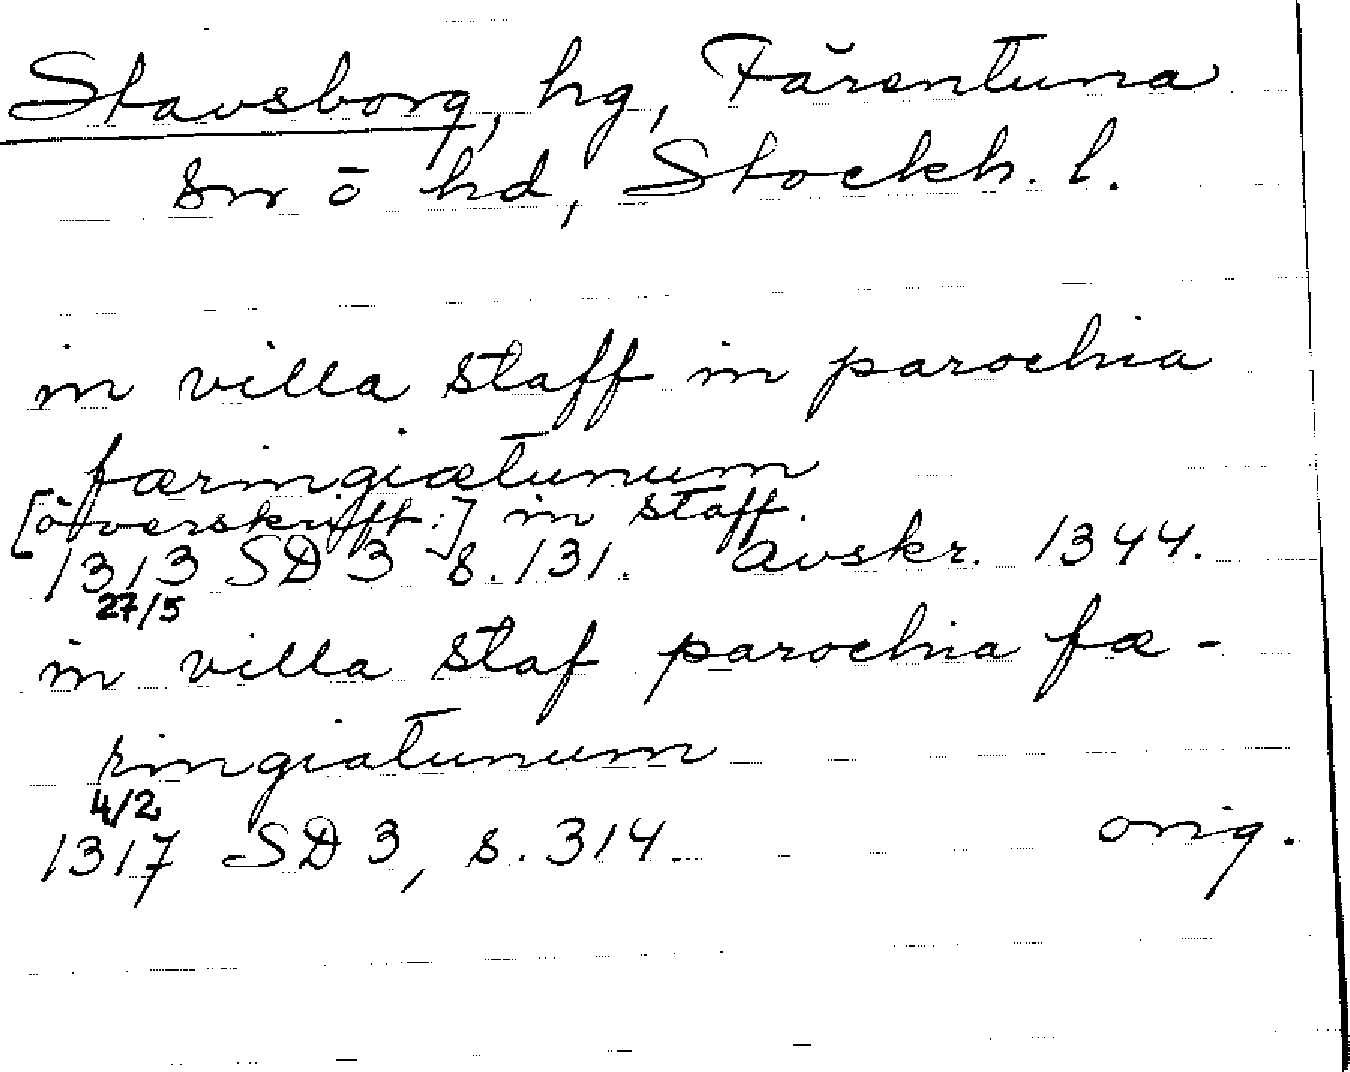 Stavsborg, hg, Färentuna
sn ō hd, Stockh. l.
in villa staff in parochia
færingiætunum
[överskrift:] in staff.
1313 SD 3 s. 131. avskr. 1344.
27/5
in villa staf parochia fæ-
ringiatunum
4/2
1317 SD 3, s. 314 orig.